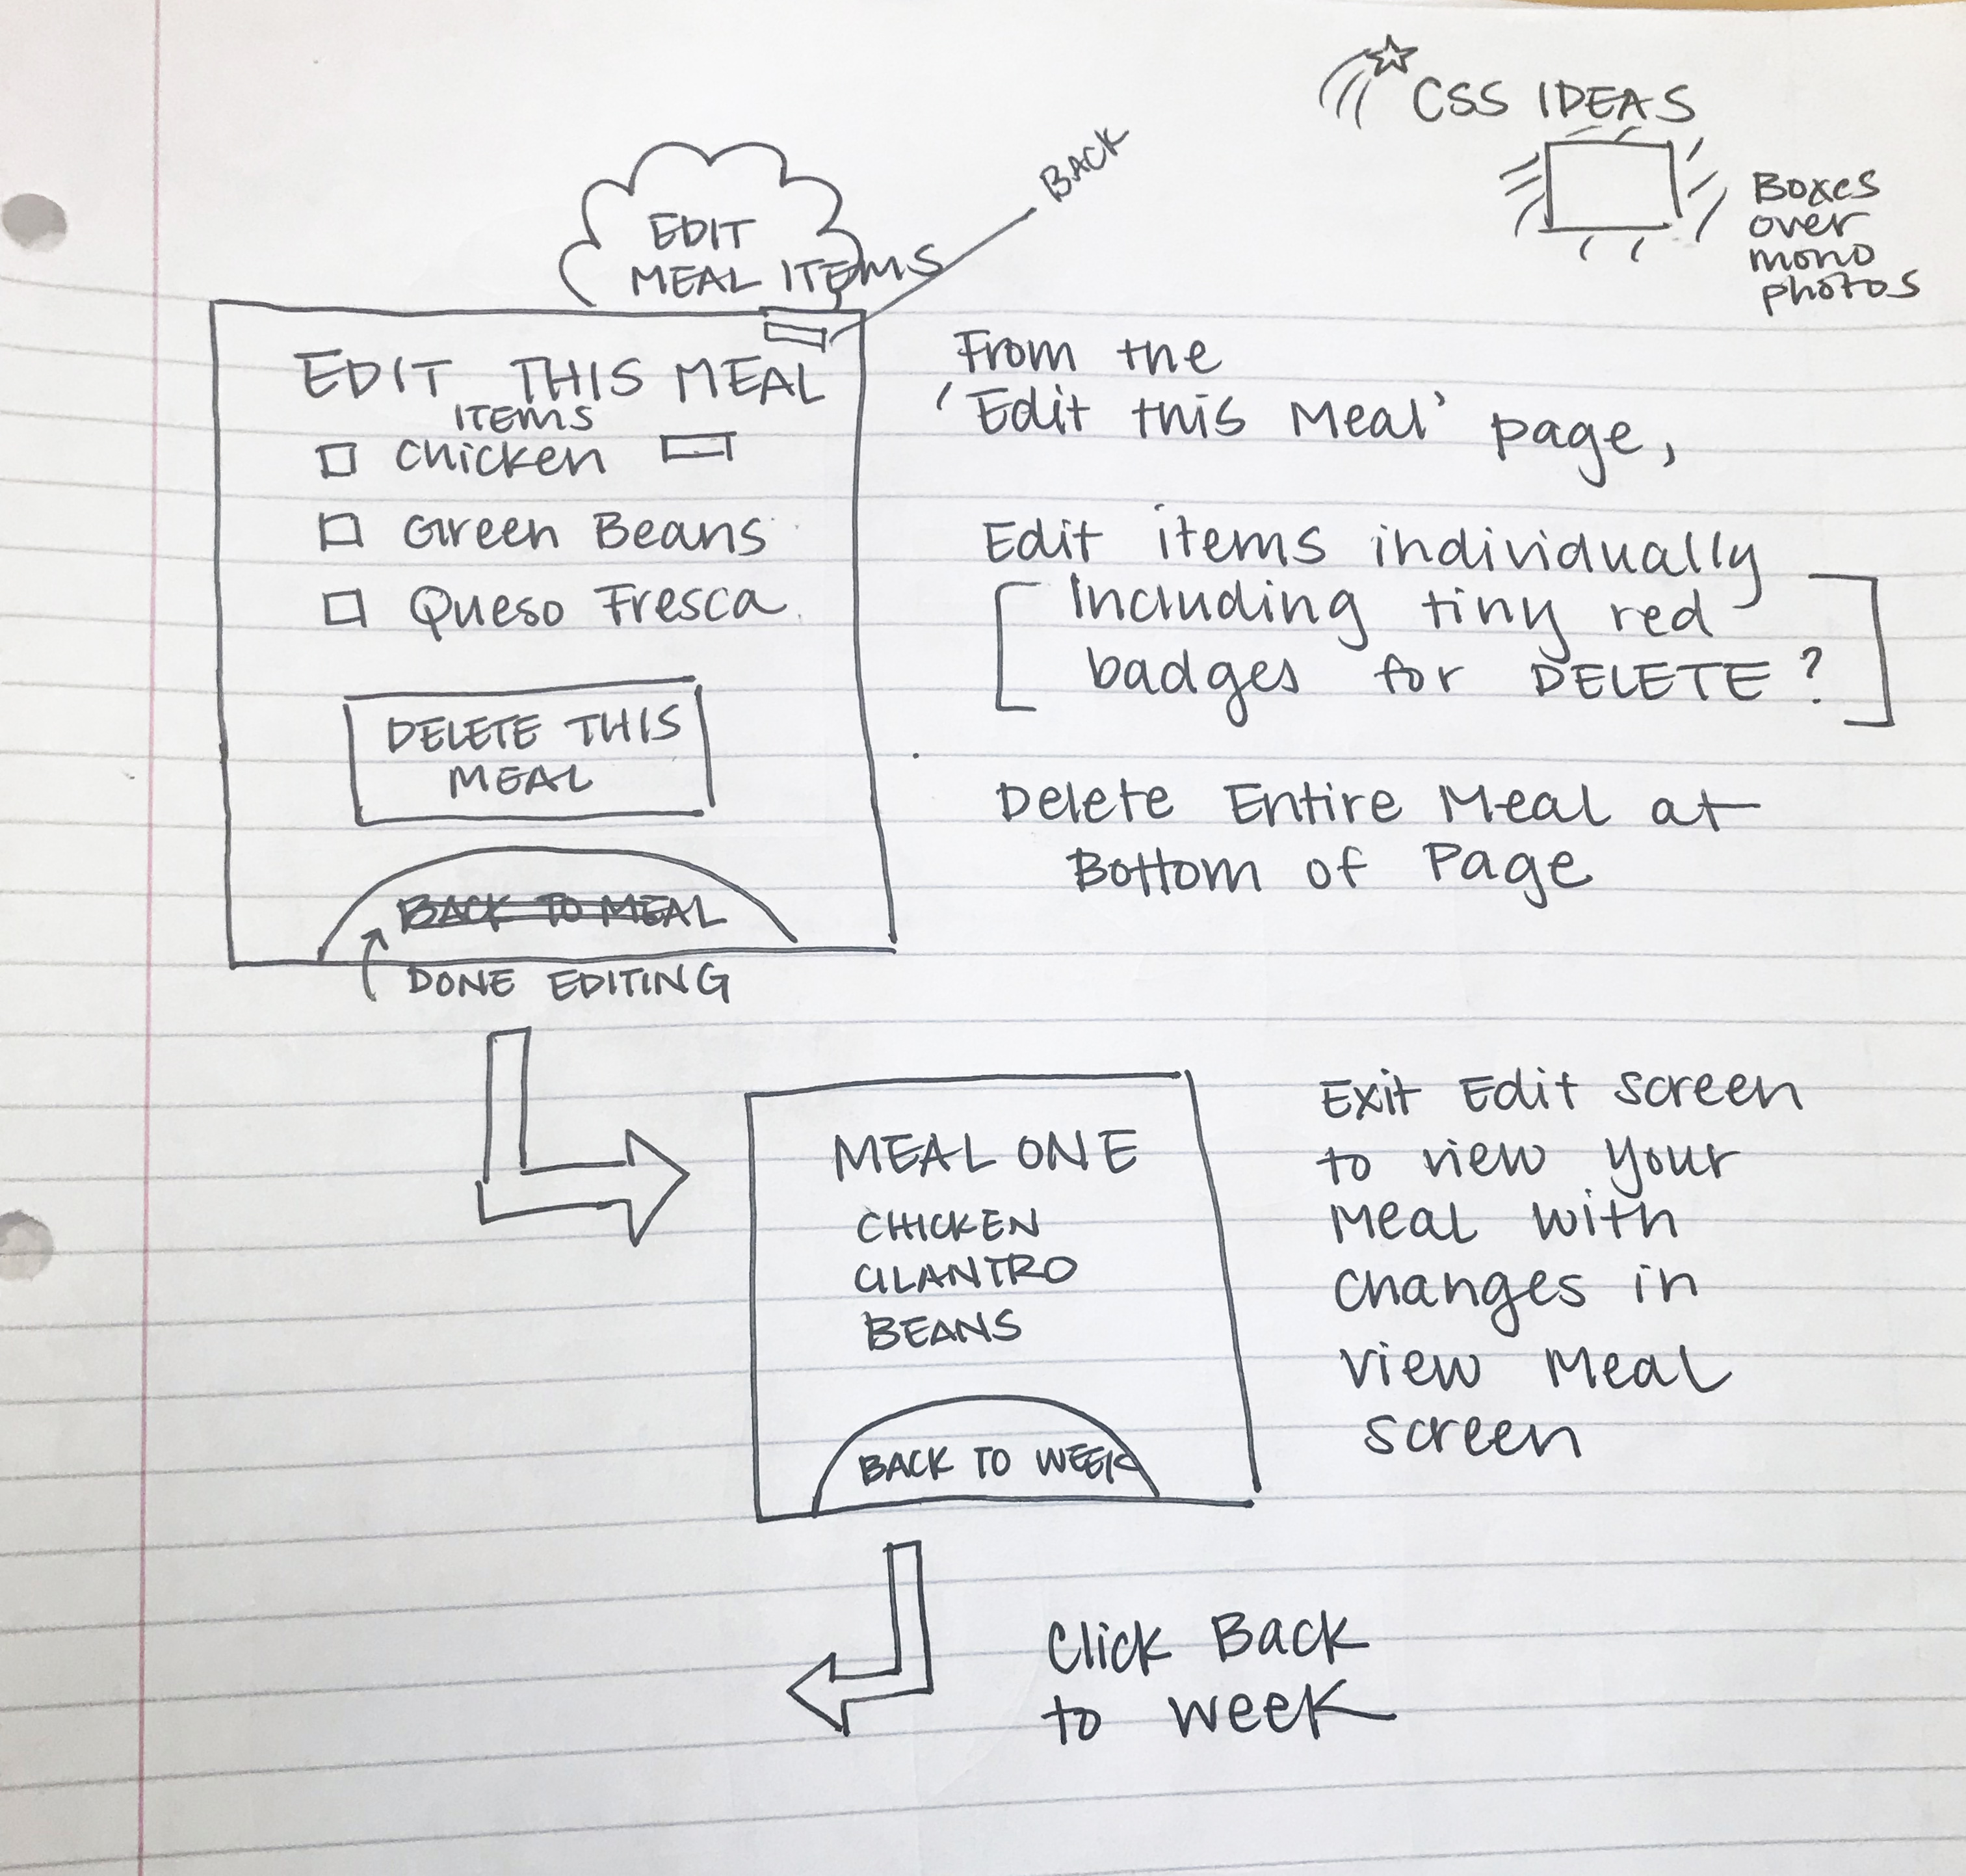 CSS IDEAS
Boxes
over
mono
photos
BACK
EDIT
MEAL ITEMS
EDIT THIS MEAL
ITEMS
Chicken
Green Beans
Queso Fresca
DELETE THIS
MEAL
BACK TO MEAL
DONE EDITING
From the
'Edit this Meal' page,
Edit items individually
Including tiny red
badges for DELETE?
Delete Entire Meal at
Bottom of Page
MEAL ONE
CHICKEN
CILANTRO
BEANS
BACK TO WEEK
Exit Edit screen
to view your
Meal with
changes in
view Meal
screen
Click Back
to week